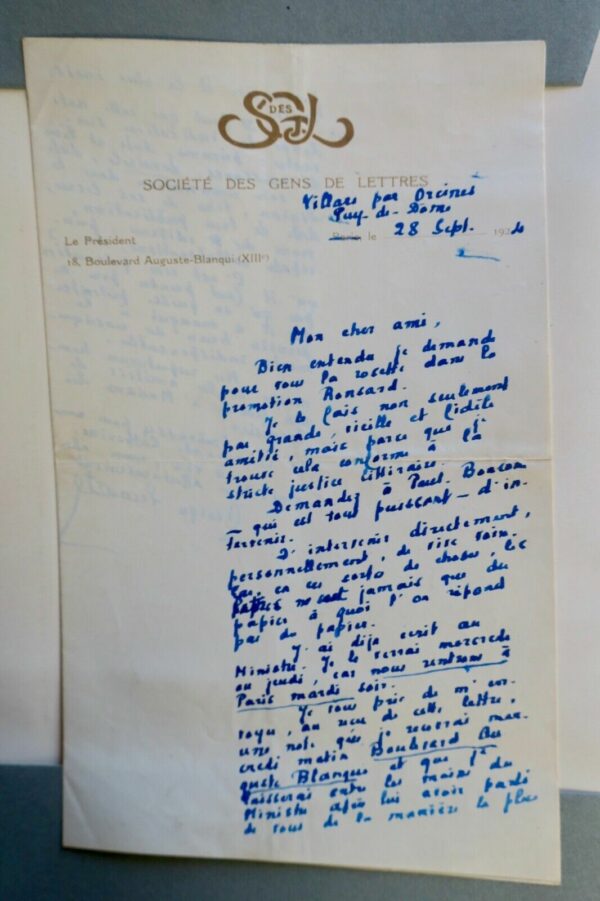 S DES G. L
SOCIÉTÉ DES GENS DE LETTRES
Villars par Orcines
Puy-de-Dome
Le Président
Paris, le 28 Sept. 192
18, Boulevard Auguste-Blanqui (XIIIe)
Mon cher ami,
Bien entendu je demande
pour vous la rosette dans la
promotion Ronsard.
Je le fais non seulement
par grande, vieille et fidèle
amitié, mais parce que je
trouve cela conforme à la
stricte justice littéraire.
Demandez à Paul-Boncour
— qui est tout puissant — d'in-
tervenir.
D'intervenir directement,
personnellement, de vive voix.
Car, en ces sortes de choses, les
lettres ne sont jamais que du
papier à quoi l'on répond
par du papier.
J'ai déjà écrit au
Ministre. Je le verrai mercredi
ou jeudi, car nous rentrons à
Paris mardi soir.
Je vous prie de m'en-
voyer, au reçu de cette lettre,
une note que je recevrai mer-
credi matin Boulevard Au-
guste Blanqui et que je
laisserai entre les mains du
Ministre après lui avoir parlé
de vous de la manière la plus